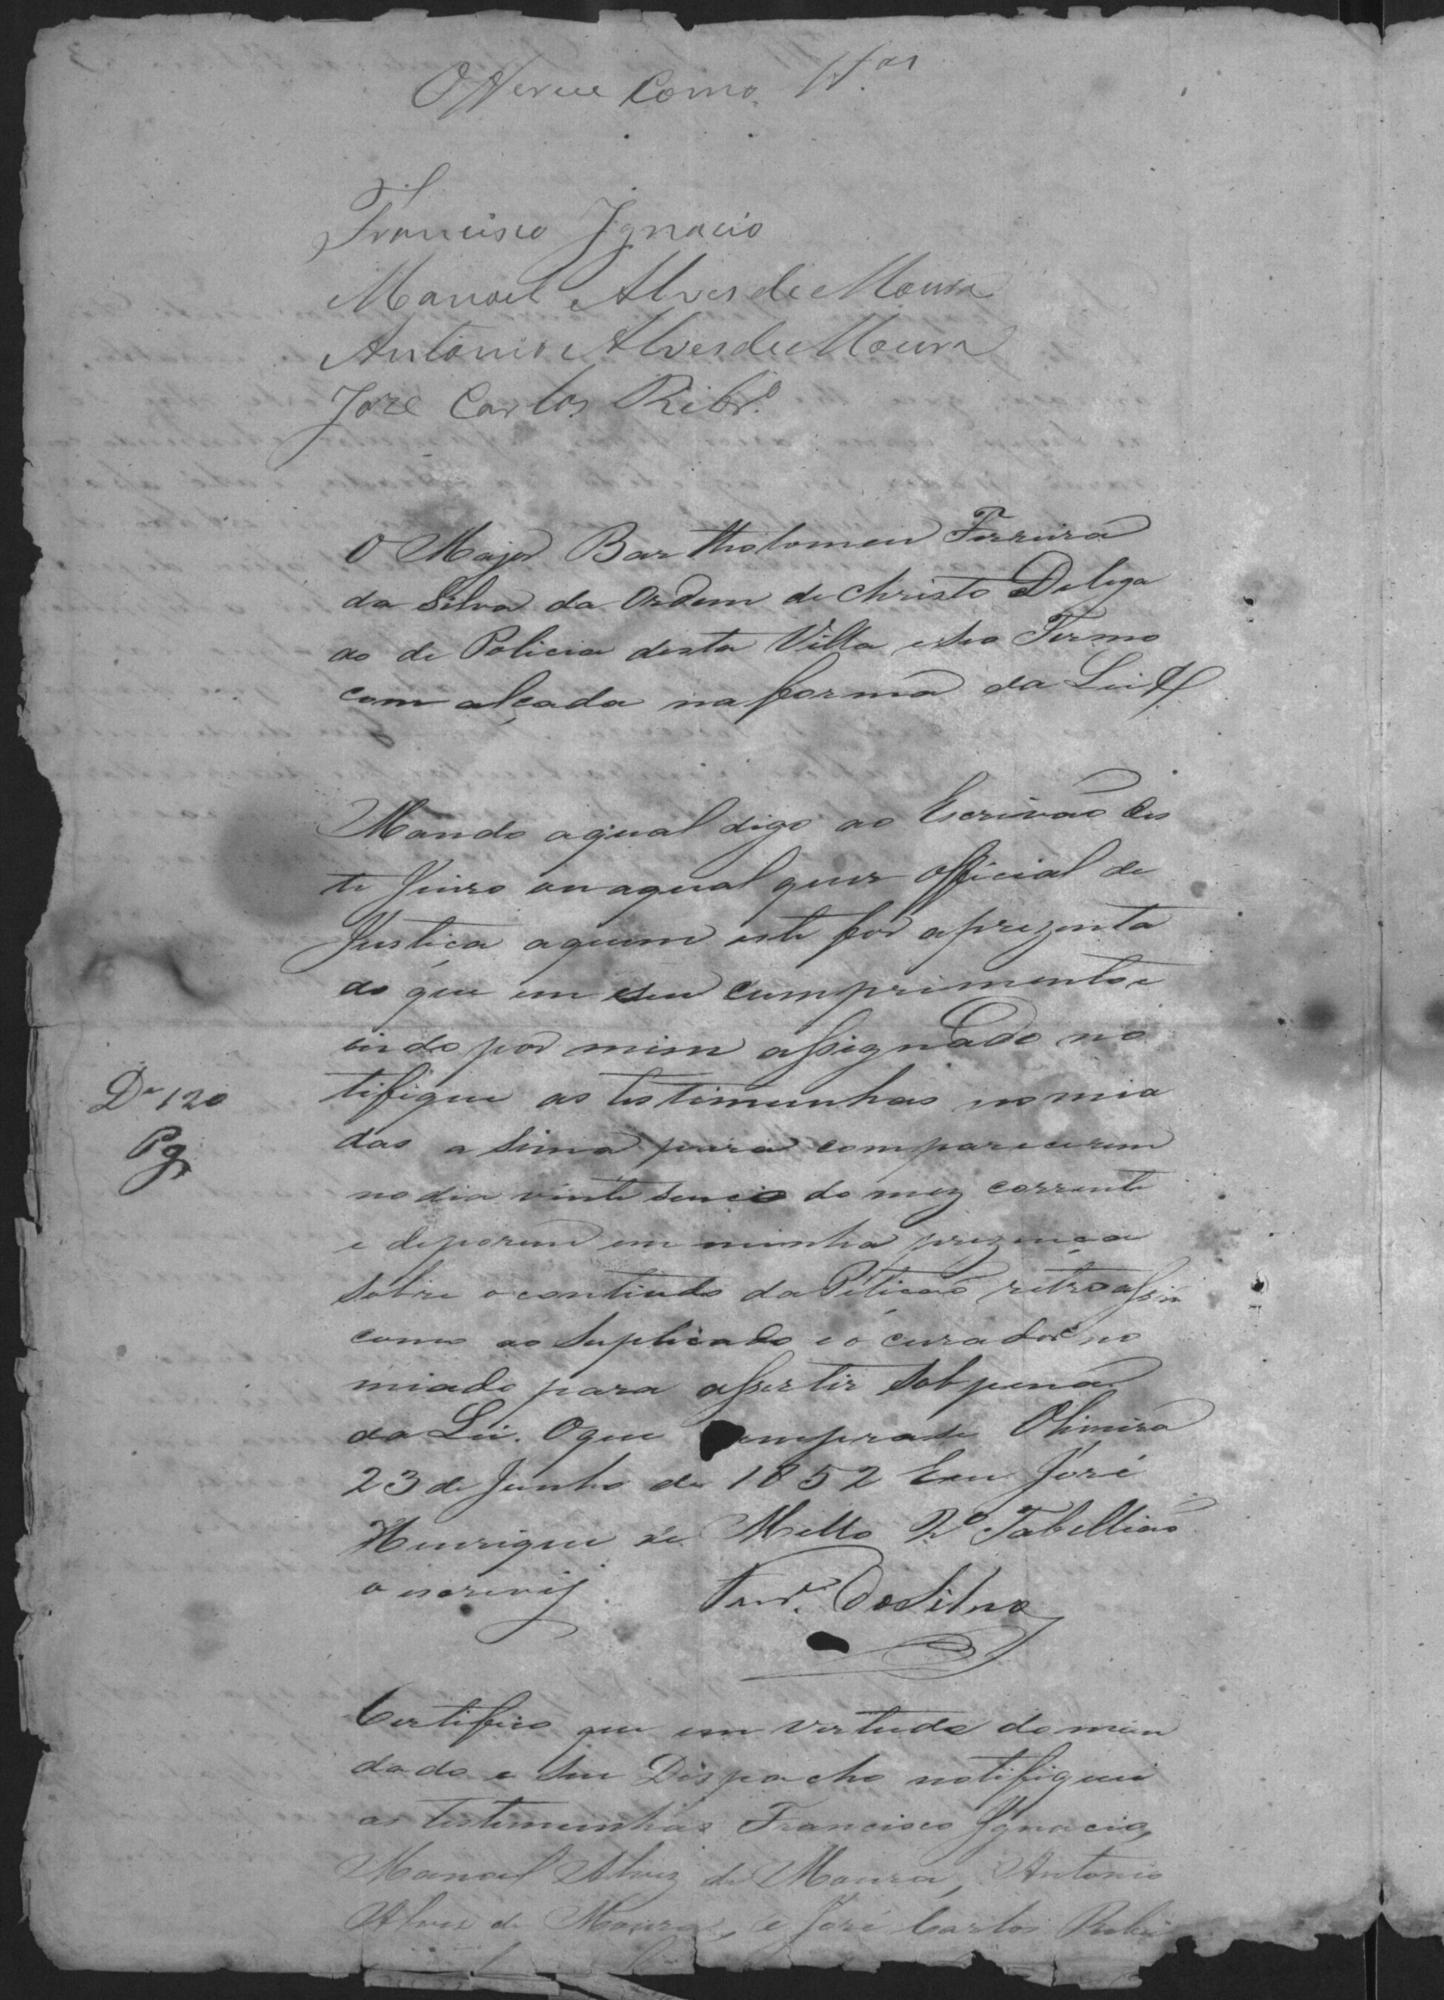 Offerece Como T.as
Francisco Ignacio
Manoel Alves de Moura
Antonio Alves de Moura
José Carlos Ribr.o
O Major Bartholomeu Ferreira
da Silva da Ordem de Christo Delega
do de Policia desta Villa e seo Termo
com alçada na forma da Lei &
Mando aqual digo ao Escrivão des
te Juiso ou aqual quer official de
Justiça aquem este for aprezenta
do que em seu cumprimento e
indo por mim assignado no
tifique as testimunhas nomia
das a sima para comparecerem
no dia vinte seis do mez corrente
e deporem em minha prezença
sobre o contiudo da Petição retro assim
como ao Suplicado e o curador no
miado para assertir sob pena
da Lei. O que cumpra se Olimira
23 de Junho de 1852 Eu José
Henrique de Mello 2.o Tabellião
o escrevij Ferr.a da Silva
D.e 120
Pg
Certifico que em virtude do man
dado e seu Dispacho notifiquei
as testimunhas Francisco Ignacio,
Manoel Alvez de Moura, Antonio
Alves de Moura, e José Carlos Ribei